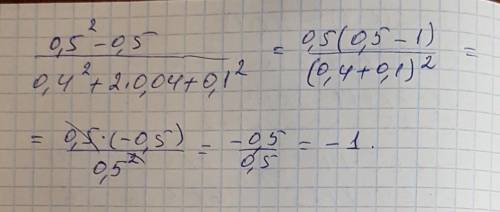 (0,5² - 0,5) / (0,4² + 2·0,04 + 0,1²) = 0,5(0,5 - 1) / (0,4 + 0,1)² =
= 0,5·(-0,5) / 0,5² = -0,5 / 0,5 = -1.